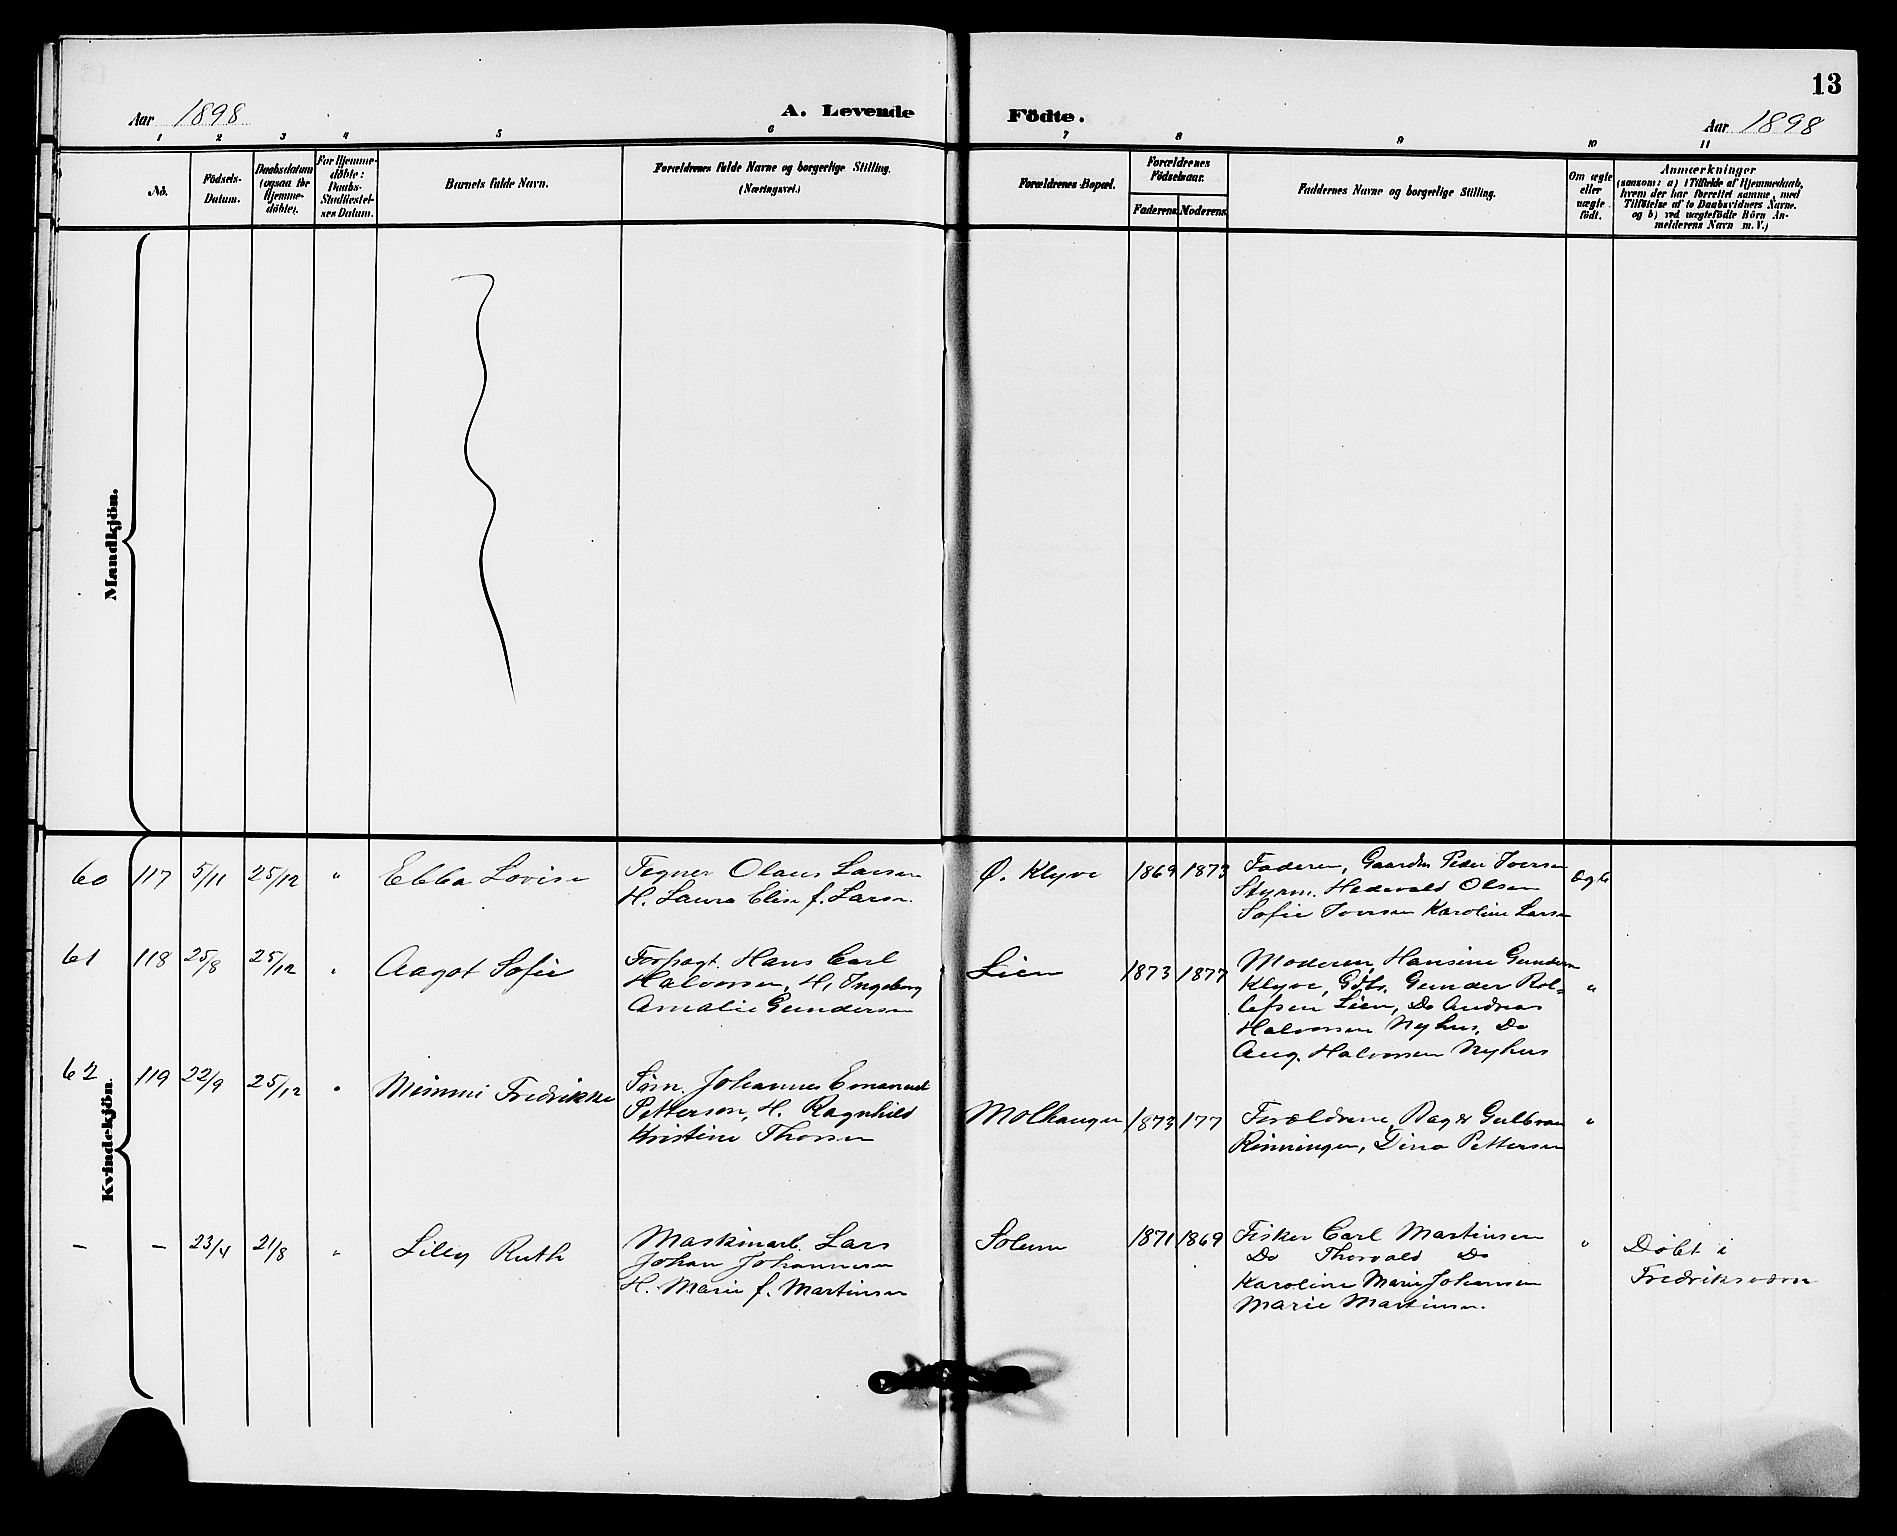 13
Aar 1898
A. Levende
Födte.
Aar 1898
1 2 3 4 5 6 7 8 9 10 11
No.
Födsels-
Datum.
Daabsdatum
(ogsaa for
Hjemme-
döbte).
For Hjemme-
döbte:
Daabs-
Stadfæstel-
ses Datum.
Barnets fulde Navn.
Forældrenes fulde Navne og borgerlige Stilling.
(Næringsvei.)
Forældrenes Bopæl.
Forældrenes
Födselsaar.
Faderens
Moderens
Faddernes Navne og borgerlige Stilling.
Om ægte
eller
uægte
födt.
Anmærkninger
(saasom: a) i Tilfælde af Hjemmedaab,
hvem der har forrettet samme, med
Tilföielse af to Daabsvidners Navne.
og b) ved uægtefödte Börn An-
melderens Navn m. V.)
Mandkjön.
Kvindekjön.
60 117 5/11 25/12 "
Ebba Lovise
Tegner Olaus Larsen
H. Laura Elise f. Larsn.
Ø. Klyve
1869 1873
Faderen, Gaardbr Peder Iversen
Styrm. Hadevald Olsen
Sofie Iversen Karoline Larsen
Ægte
61 118 25/8 25/12 "
Aagot Sofie
Forpagt. Hans Carl
Halvorsen, H. Ingeborg
Amalie Gundersen
Lien
1873 1877
Moderen, Hansine Gundersen
Klyve, Gdbr. Gunder Rol-
lefsen Lien, Do Andreas
Halvorsen Nyhus, Do
Aug. Halvorsen Nyhus
"
62 119 22/9 25/12 "
Mimmi Fredrikke
Søm. Johannes Emanuel
Petterson, H. Ragnhild
Kristine Thorsen
Molhaugen
1873 177
Forældrene, Bag Gulbran
Rinningen, Dina Pettersen
"
– – 23/4 21/8 "
Lilly Ruth
Maskinarb. Lars
Johan Johannesen
H. Marie f. Martinsen
Solum
1871 1869
Fisker Carl Martinsen
Do Thorvald Do
Karoline Marie Johansen
Marie Martinsen.
"
Døbt i
Fredriksværn